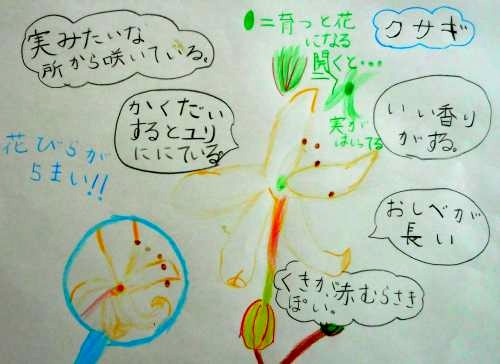 クサギ
実みたいな
所から咲いている。
●＝育っと花
になる
開くと…
実が
はしってる
かくだい
するとユリ
ににている。
いい香り
がする。
花びらが
5まい!!
おしべが
長い
くきが、赤むらさき
ぽい。